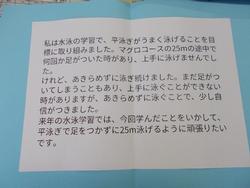 私は水泳の学習で、平泳ぎがうまく泳げることを目
標に取り組みました。マグロコースの25mの途中で
何回か足がついた時があり、上手に泳げませんでし
た。
けれど、あきらめずに泳ぎ続けました。まだ足がつ
いてしまうこともあり、上手に泳ぐことができない
時がありますが、あきらめずに泳ぐことで、少し自
信がつきました。
来年の水泳学習では、今回学んだことをいかして、
平泳ぎで足をつかずに25m泳げるように頑張りたい
です。